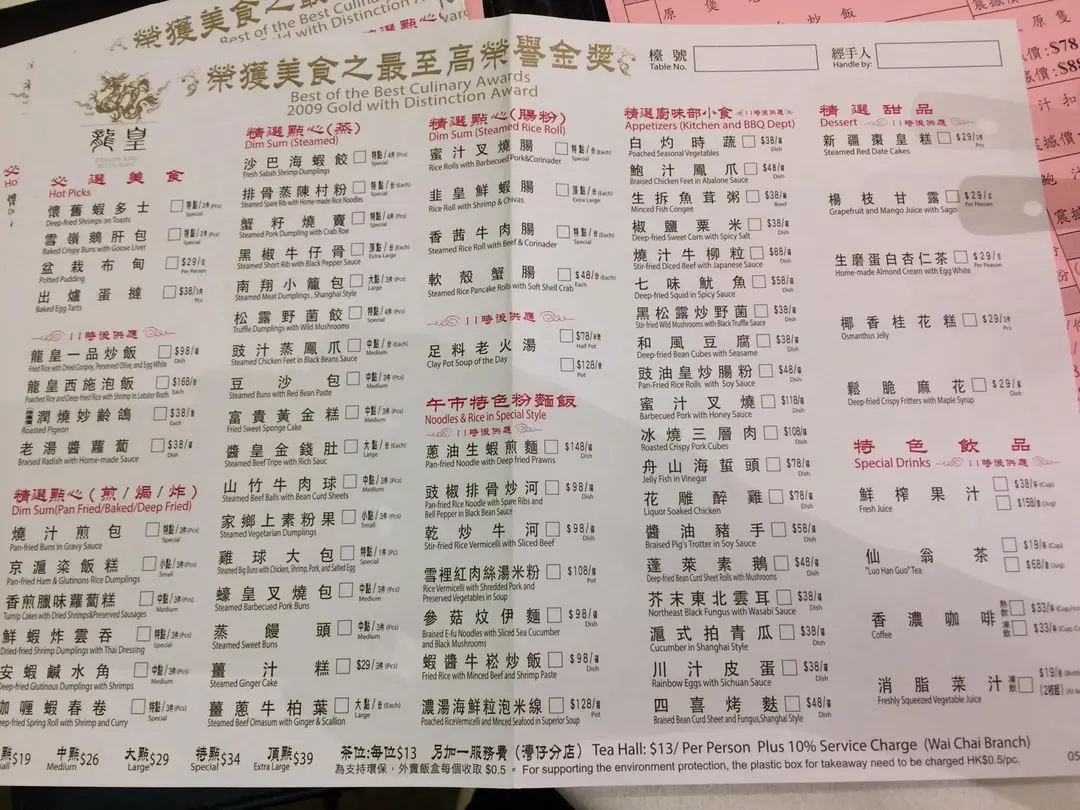 榮獲美食之最至高榮譽金獎
Best of the Best Culinary Awards
2009 Gold with Distinction Award
檯號
Table No.
經手人
Handle by:
龍皇
必選美食
Hot Picks
懷舊蝦多士 特點/3件(Pcs)
Deep-fried Shrimps on Toasts Special
雪嶺鵝肝包 特點/3件(Pcs)
Baked Crispy Buns with Goose Liver Special
盆栽布甸 $29/位
Potted Pudding Per Person
出爐蛋撻 $38/3件
Baked Egg Tarts Pcs
11時後供應
龍皇一品炒飯 $98/碟
Fried Rice with Dried Conpoy, Perserved Olive, and Egg White Dish
龍皇西施泡飯 $168/
Poached Rice and Deep-fried Rice with Shrimp in Lobster Broth Each
潤燒妙齡鴿 $38/
Roasted Pigeon Each
老湯醬蘿蔔 $38/碟
Braised Radish with Home-made Sauce Dish
精選點心(煎/焗/炸)
Dim Sum(Pan Fried/Baked/Deep Fried)
燒汁煎包 特點/3件(Pcs)
Pan-fried Buns in Gravy Sauce Special
京滬粢飯糕 小點/3件(Pcs)
Pan-fried Ham & Glutinons Rice Dumplings Small
香煎臘味蘿蔔糕 中點/3件(Pcs)
Turnip Cakes with Dried Shrimps&Preserved Sausages Medium
鮮蝦炸雲吞 特點/3件(Pcs)
Dried-fried Shrimp Dumplings with Thai Dressing Special
安蝦鹹水角 中點/3件(Pcs)
Deep-fried Glutinous Dumplings with Shrimps Medium
咖喱蝦春卷 特點/3件(Pcs)
Deep-fried Spring Roll with Shrimp and Curry Special
精選點心(蒸)
Dim Sum (Steamed)
沙巴海蝦餃 特點/4件(Pcs)
Fresh Sabah Shrimp Dumplings Special
排骨蒸陳村粉 特點/份(Each)
Steamed Spare Rib with Home-made Rice Noodles Special
蟹籽燒賣 特點/4件(Pcs)
Steamed Pork Dumpling with Crab Roe Special
黑椒牛仔骨 頂點/份(Each)
Steamed Short Rib with Black Pepper Sauce Extra Large
南翔小籠包 大點/3件(Pcs)
Steamed Meat Dumplings, Shanghai Style Large
松露野菌餃 特點/4件(Pcs)
Truffle Dumplings with Wild Mushrooms Special
豉汁蒸鳳爪 中點/份(Each)
Steamed Chicken Feet in Black Beans Sauce Medium
豆沙包 中點/3件(Pcs)
Steamed Buns with Red Bean Paste Medium
富貴黃金糕 中點/3件(Pcs)
Fried Sweet Sponge Cake Medium
醬皇金錢肚 大點/份(Each)
Steamed Beef Tripe with Rich Sauc Large
山竹牛肉球 中點/3件(Pcs)
Steamed Beef Balls with Bean Curd Sheets Medium
家鄉上素粉果 小點/3件(Pcs)
Steamed Vegetarian Dumplings Small
雞球大包 特點/1件(Pc)
Steamed Big Buns with Chicken, Shrimp, Pork, and Salted Egg Special
蠔皇叉燒包 中點/3件(Pcs)
Steamed Barbecued Pork Buns Medium
蒸饅頭 中點/3件(Pcs)
Steamed Sweet Buns Medium
薑汁糕 $29/3件(Pcs)
Steamed Ginger Cake
薑蔥牛柏葉 大點/份(Each)
Steamed Beef Omasum with Ginger & Scallion Large
精選點心(腸粉)
Dim Sum (Steamed Rice Roll)
蜜汁叉燒腸 特點/份(Each)
Rice Rolls with Barbecued Pork&Corinader Special
韭皇鮮蝦腸 頂點/份(Each)
Rice Roll with Shrimp & Chivas Extra Large
香茜牛肉腸 特點/份(Each)
Steamed Rice Roll with Beef & Corinader Special
軟殼蟹腸 $48/份(Each)
Steamed Rice Pancake Rolls with Soft Shell Crab Each
11時後供應
足料老火湯 $78/
Clay Pot Soup of the Day Half Pot
$128/
Pot
午市特色粉麵飯
Noodles & Rice in Special Style
11時後供應
蔥油生蝦煎麵 $148/碟
Pan-fried Noodle with Deep fried Prawns Dish
豉椒排骨炒河 $98/碟
Pan-fried Rice Noodle with Spare Ribs and Dish
Bell Pepper in Black Bean Sauce
乾炒牛河 $98/碟
Stir-fried Rice Vermicelli with Sliced Beef Dish
雪裡紅肉絲湯米粉 $108/
Rice Vermicelli with Shredded Pork and Pot
Preserved Vegetables in Soup
參菇炆伊麵 $98/碟
Braised E-fu Noodles with Sliced Sea Cucumber Dish
and Black Mushrooms
蝦醬牛崧炒飯 $98/碟
Fried Rice with Minced Beef and Shrimp Paste Dish
濃湯海鮮粒泡米線 $128/
Poached RiceVermicelli and Minced Seafood in Superior Soup Pot
精選廚味部小食 11時後供應
Appetizers (Kitchen and BBQ Dept)
白灼時蔬 $38/碟
Poached Seasonal Vegetables Dish
鮑汁鳳爪 $48/碟
Braised Chicken Feet in Abalone Sauce Dish
生拆魚茸粥 $38/
Minced Fish Congee Bowl
椒鹽粟米 $38/碟
Deep-fried Sweet Corn with Spicy Salt Dish
燒汁牛柳粒 $88/碟
Stir-fried Diced Beef with Japanese Sauce Dish
七味魷魚 $58/碟
Deep-fried Squid in Spicy Sauce Dish
黑松露炒野菌 $38/碟
Stir-fried Wild Mushrooms with Black Truffle Sauce Dish
和風豆腐 $38/碟
Deep-fried Bean Cubes with Seasame Dish
豉油皇炒腸粉 $48/碟
Pan-Fried Rice Rolls with Soy Sauce Dish
蜜汁叉燒 $118/碟
Barbecued Pork with Honey Sauce Dish
冰燒三層肉 $108/碟
Roasted Crispy Pork Cubes Dish
舟山海蜇頭 $78/碟
Jelly Fish in Vinegar Dish
花雕醉雞 $78/碟
Liquor Soaked Chicken Dish
醬油豬手 $58/碟
Braised Pig's Trotter in Soy Sauce Dish
蓬萊素鵝 $48/碟
Deep-fried Bean Curd Sheet Rolls with Mushrooms Dish
芥末東北雲耳 $38/碟
Northeast Black Fungus with Wasabi Sauce Dish
滬式拍青瓜 $38/碟
Cucumber in Shanghai Style Dish
川汁皮蛋 $38/碟
Rainbow Eggs with Sichuan Sauce Dish
四喜烤麩 $48/碟
Braised Bean Curd Sheet and Fungus,Shanghai Style Dish
精選甜品
Dessert 11時後供應
新疆棗皇糕 $29/3件
Steamed Red Date Cakes Pcs
楊枝甘露 $29/位
Grapefruit and Mango Juice with Sago Per Person
生磨蛋白杏仁茶 $29/位
Home-made Almond Cream with Egg White Per Person
椰香桂花糕 $29/3件
Osmanthus Jelly Pcs
鬆脆麻花 $29/碟
Deep-fried Crispy Fritters with Maple Syrup Dish
特色飲品
Special Drinks 11時後供應
鮮榨果汁 $38/杯(Cup)
Fresh Juice $158/(Jug)
仙翁茶 $19/杯(Cup)
"Luo Han Guo" Tea $68/(Jug)
香濃咖啡 熱飲 $33/杯(Cup,Hot
Coffee 凍飲 $33/杯(Cup,
消脂菜汁 凍飲 $19/
Freshly Squeezed Vegetable Juice
點$19 中點$26 大點$29 特點$34 頂點$39 茶位:每位$13 另加一服務費(灣仔分店) Tea Hall: $13/ Per Person Plus 10% Service Charge (Wai Chai Branch)
Medium Large Special Extra Large 為支持環保,外賣飯盒每個收取 $0.5。 For supporting the environment protection, the plastic box for takeaway need to be charged HK$0.5/pc.